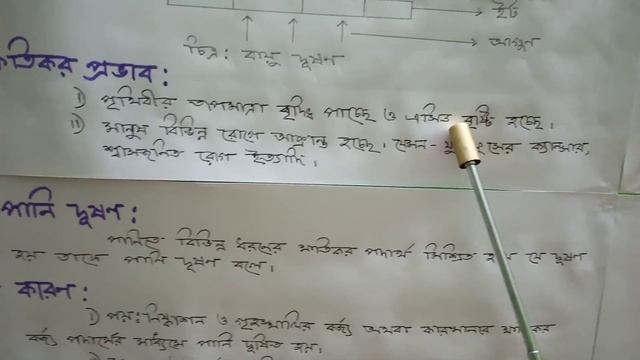 ইট
আগুন
চিত্র: বায়ু দূষণ
ক্ষতিকর প্রভাব:
i) পৃথিবীর তাপমাত্রা বৃদ্ধি পাচ্ছে ও এসিড বৃষ্টি হচ্ছে।
ii) মানুষ বিভিন্ন রোগে আক্রান্ত হচ্ছে। যেমন- ক্যান্সার,
শ্বাসজনিত রোগ ইত্যাদি।
পানি দূষণ:
পানিতে বিভিন্ন ধরনের ক্ষতিকর পদার্থ মিশ্রিত হয়ে যে দূষণ
হয় তাকে পানি দূষণ বলে।
কারন:
i) পয়:নিষ্কাশন ও গৃহস্থালির বর্জ্য অথবা কারখানার ক্ষতিকর
বর্জ্য পদার্থের মাধ্যমে পানি দূষিত হয়।